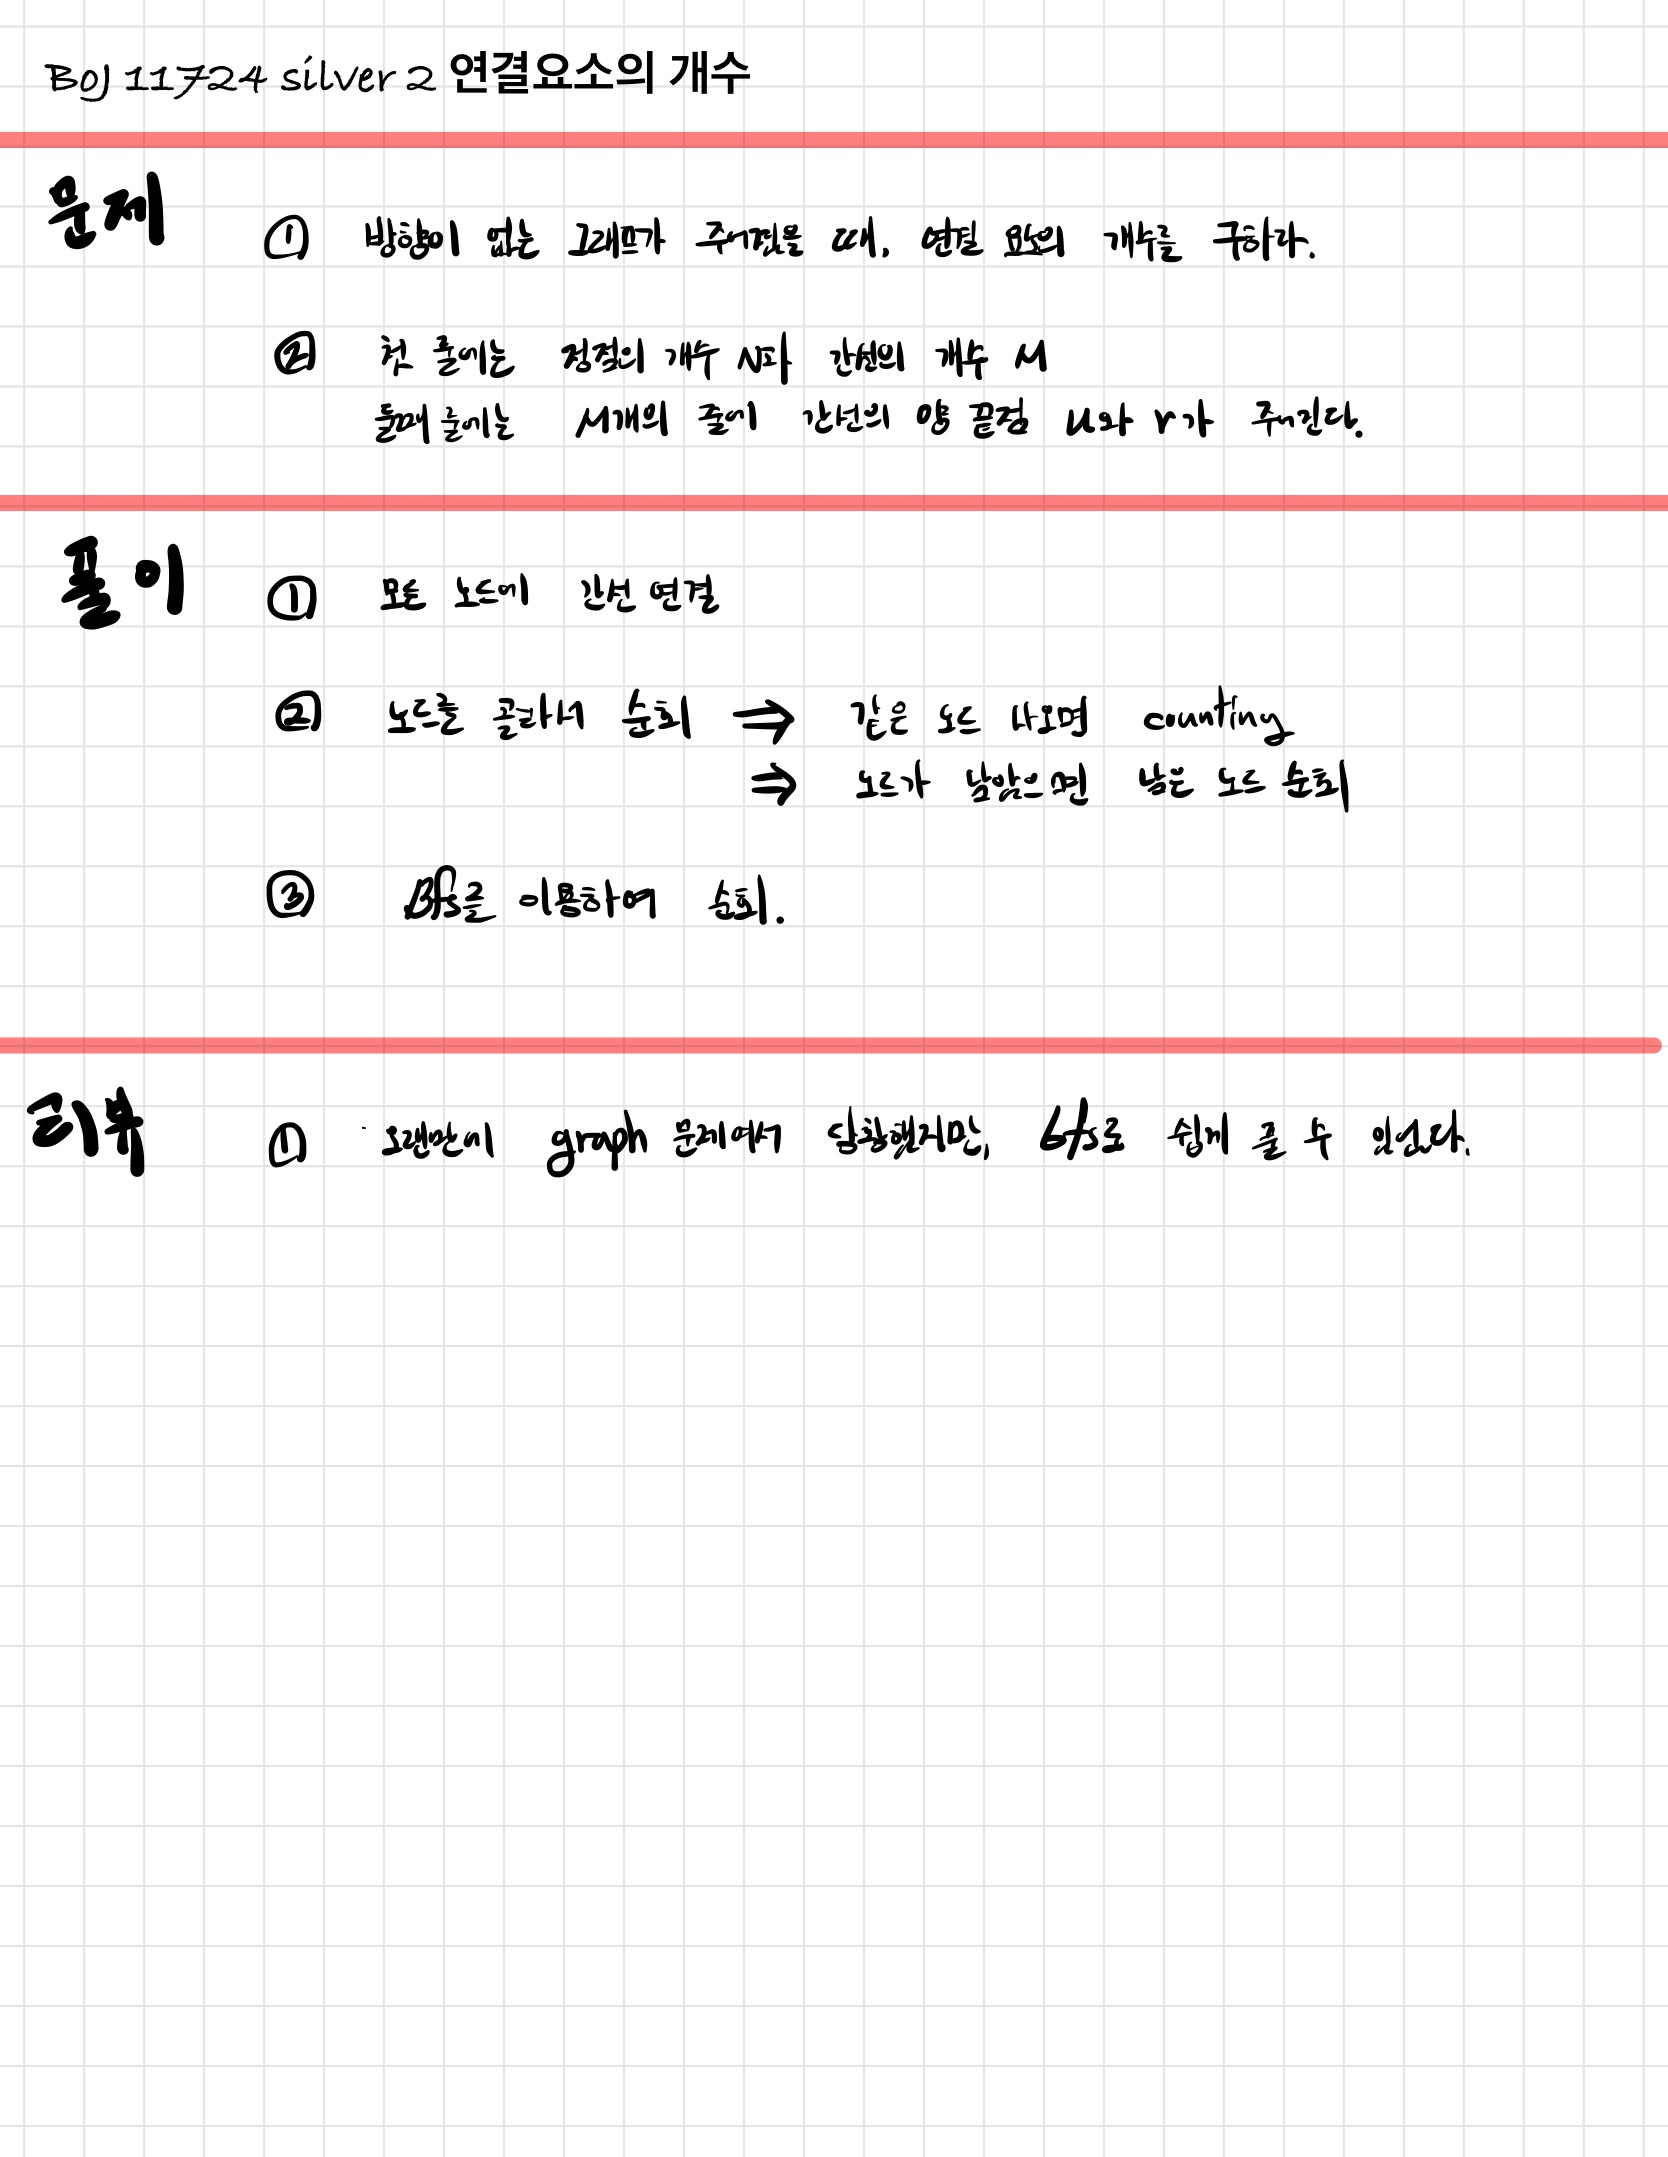 BOJ 11724 silver 2 연결요소의 개수
문제
① 방향이 없는 그래프가 주어졌을 때, 연결 요소의 개수를 구하라.
② 첫 줄에는 정점의 개수 N과 간선의 개수 M
둘째 줄에는 M개의 줄에 간선의 양 끝점 u와 v가 주어진다.
풀이
① 모든 노드에 간선 연결
② 노드를 골라서 순회 ⇒ 같은 노드 나오면 counting
⇒ 노드가 남았으면 남은 노드 순회
③ Bfs를 이용하여 순회.
리뷰
① 오랜만에 graph 문제여서 당황했지만, bfs로 쉽게 풀 수 있었다.